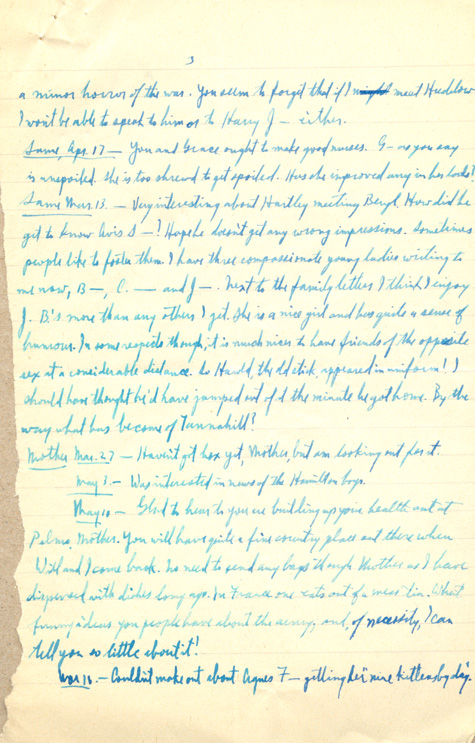 3
a minor horror of the war. You seem to forget that if I might meet Hudelow
I won't be able to speak to him or to Harry J— either.
Same, Apr. 17 — You and Grace ought to make good nurses. G— as you say
is unspoiled. She is too shrewd to get spoiled. Has she improved any in her looks?
Same Mar. 13. — Very interesting about Hartley meeting Bergl. How did he
get to know Avis S—? Hope he doesn't get any wrong impressions. Sometimes
people like to foster them. I have three compassionate young ladies writing to
me now, B—, C. — and J—. Next to the family letters I think I enjoy
J. B's more than any others I get. She is a nice girl and has quite a sense of
humour. In some respects though, it is much nicer to have friends of the opposite
sex at a considerable distance. So Harold, the old stick, appeared in uniform! I
should have thought he'd have jumped out of it the minute he got home. By the
way what has become of Tannahill?
Mother Mar. 27 — Haven't got box yet, Mother, but am looking out for it.
May 3. — Was interested in news of the Hamilton boys.
May 10 — Glad to hear to you are building up your health out at
Palmo, Mother. You will have quite a fine country place out there when
Wil and I come back. No need to send any bags though Mother as I have
dispensed with dishes long ago. In France one eats out of a mess tin. What
funny ideas you people have about the army, and, of necessity, I can
tell you so little about it!
Mar 16. — Couldn't make out about Agnes F— getting her "nine kittens by day".